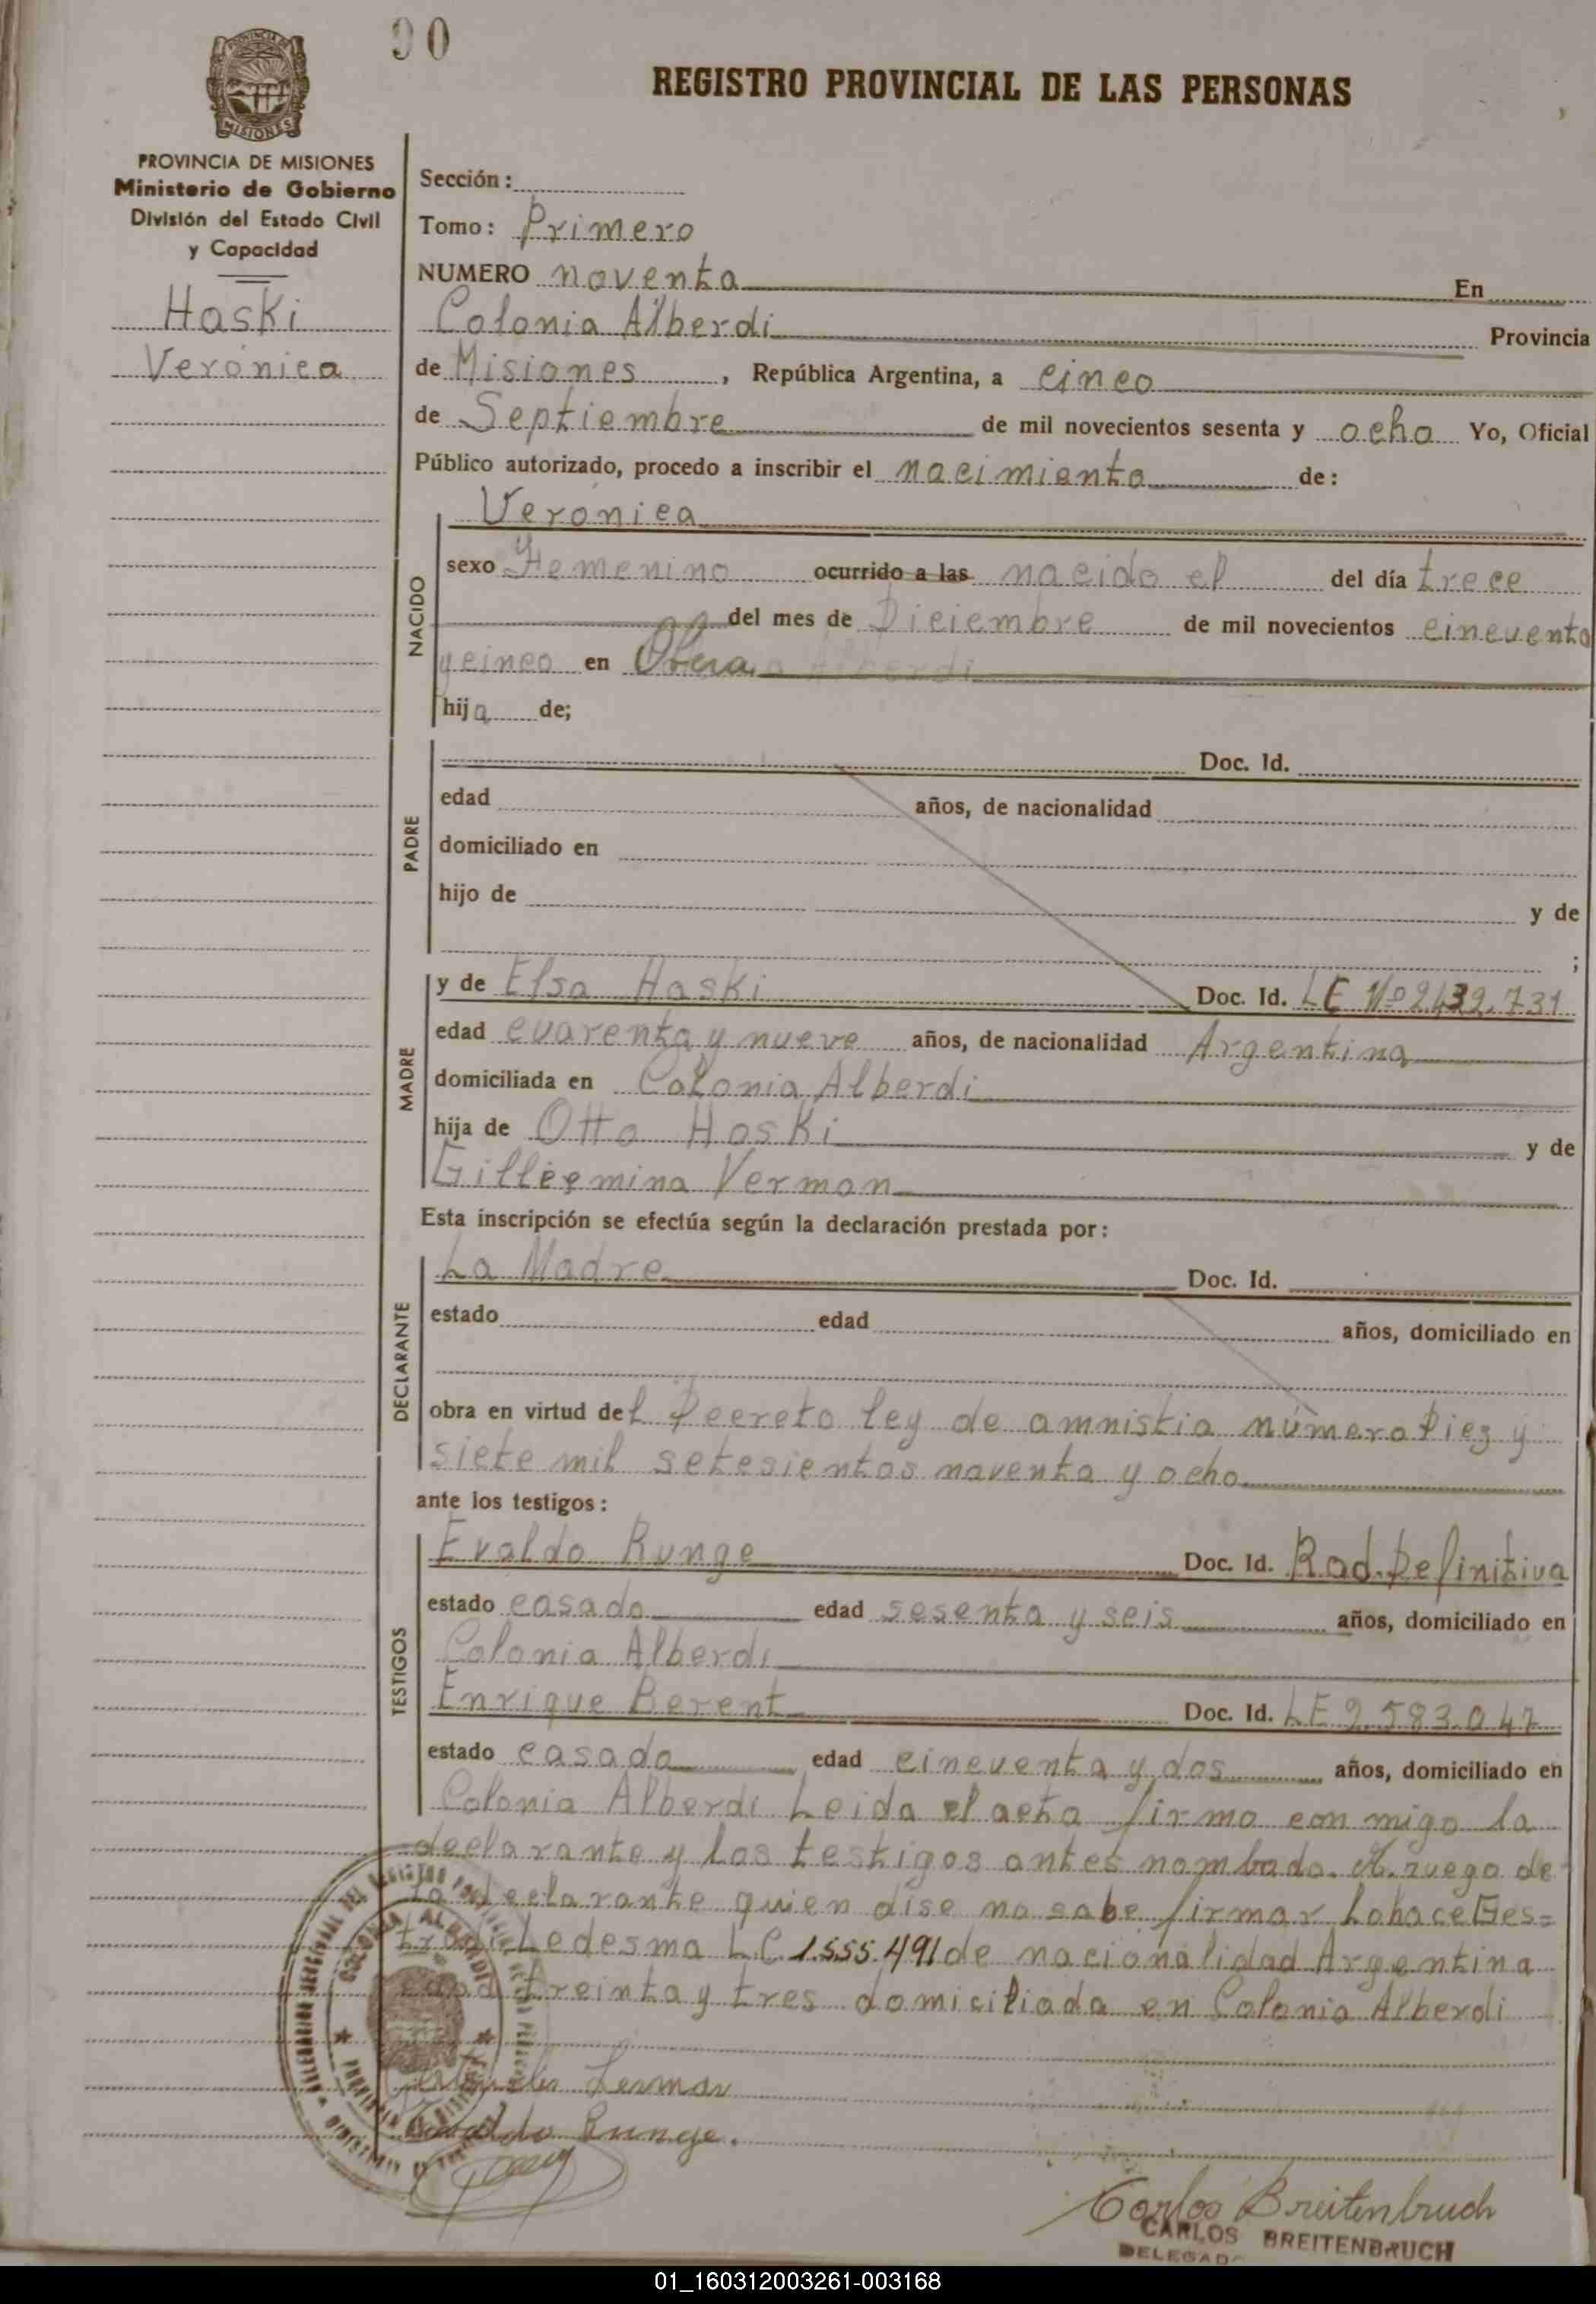 90
REGISTRO PROVINCIAL DE LAS PERSONAS
MISIONES
PROVINCIA DE MISIONES
Ministerio de Gobierno
División del Estado Civil
y Capacidad
Haski
Verónica
Sección:
Tomo: Primero
NUMERO noventa En
Colonia Alberdi Provincia
de Misiones, República Argentina, a cinco
de Septiembre de mil novecientos sesenta y ocho Yo, Oficial
Público autorizado, procedo a inscribir el nacimiento de:
NACIDO
Verónica
sexo Femenino ocurrido a las nacido el del día trece
del mes de Diciembre de mil novecientos cincuenta
y cinco en Oberá
hija de;
PADRE
Doc. Id.
edad años, de nacionalidad
domiciliado en
hijo de y de
;
MADRE
y de Elsa Haski Doc. Id. LE Nº 2.432.731
edad cuarenta y nueve años, de nacionalidad Argentina
domiciliada en Colonia Alberdi
hija de Otto Haski y de
Gillermina Verman
Esta inscripción se efectúa según la declaración prestada por:
DECLARANTE
La Madre Doc. Id.
estado edad años, domiciliado en
obra en virtud del Decreto ley de amnistia número Diez y
siete mil setesientos noventa y ocho
ante los testigos:
TESTIGOS
Evaldo Runge Doc. Id. Rad. Definitiva
estado casado edad sesenta y seis años, domiciliado en
Colonia Alberdi
Enrique Berent Doc. Id. LE 2.583.047
estado casado edad cincuenta y dos años, domiciliado en
Colonia Alberdi Leida el acta firmo con migo la
declarante y los testigos antes nombado. A ruego de
la declarante quien dise no sabe firmar Lo hace Ges=
Ledesma L.C. 1.555.491 de nacionalidad Argentina
treinta y tres domiciliada en Colonia Alberdi
Evaldo Runge.
Carlos Breitenbruch
CARLOS BREITENBRUCH
DELEGADO
01_160312003261-003168